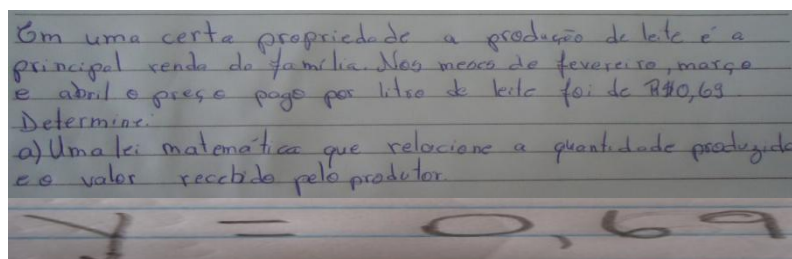 Em uma certa propriedade a produção de leite é a
principal renda da família. Nos meses de fevereiro, março
e abril o preço pago por litro de leite foi de R$0,69.
Determine:
a) Uma lei matemática que relacione a quantidade produzida
e o valor recebido pelo produtor.
y = 0,69